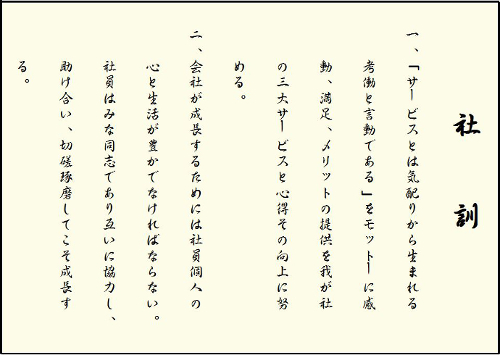 社訓
一、「サービスとは気配りから生まれる
考働と言動である」をモットーに感
動、満足、メリットの提供を我が社
の三大サービスと心得その向上に努
める。
二、会社が成長するためには社員個人の
心と生活が豊かでなければならない。
社員はみな同志であり互いに協力し、
助け合い、切磋琢磨してこそ成長す
る。